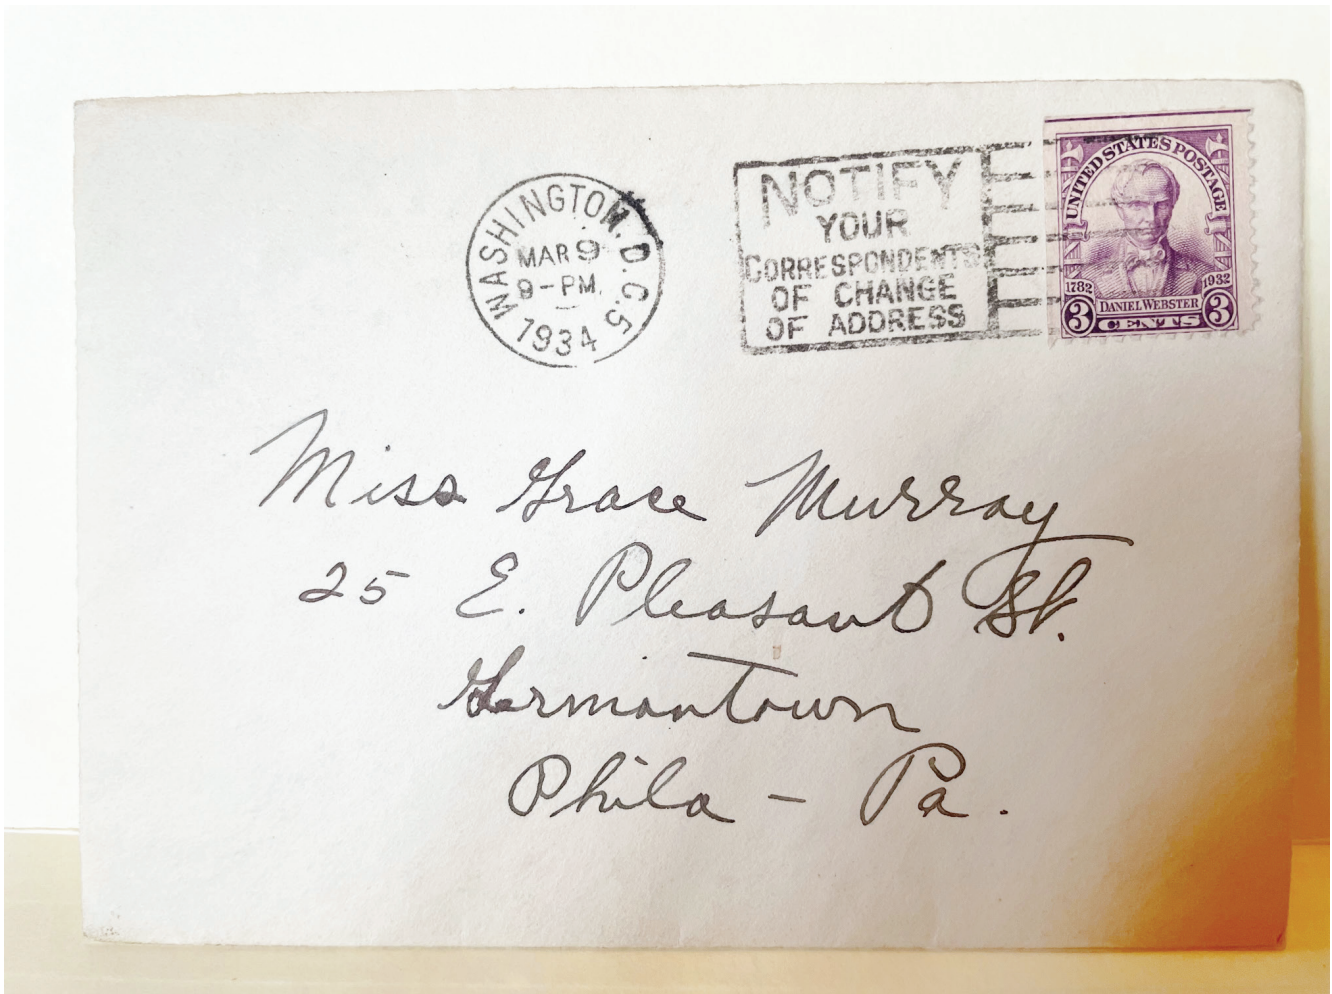 WASHINGTON, D.C. 5
MAR 9
9-PM.
1934
NOTIFY
YOUR
CORRESPONDENTS
OF CHANGE
OF ADDRESS
UNITED STATES POSTAGE
1782 1932
DANIEL WEBSTER
3 CENTS 3
Miss Grace Murray
25 E. Pleasant St.
Germantown
Phila - Pa.